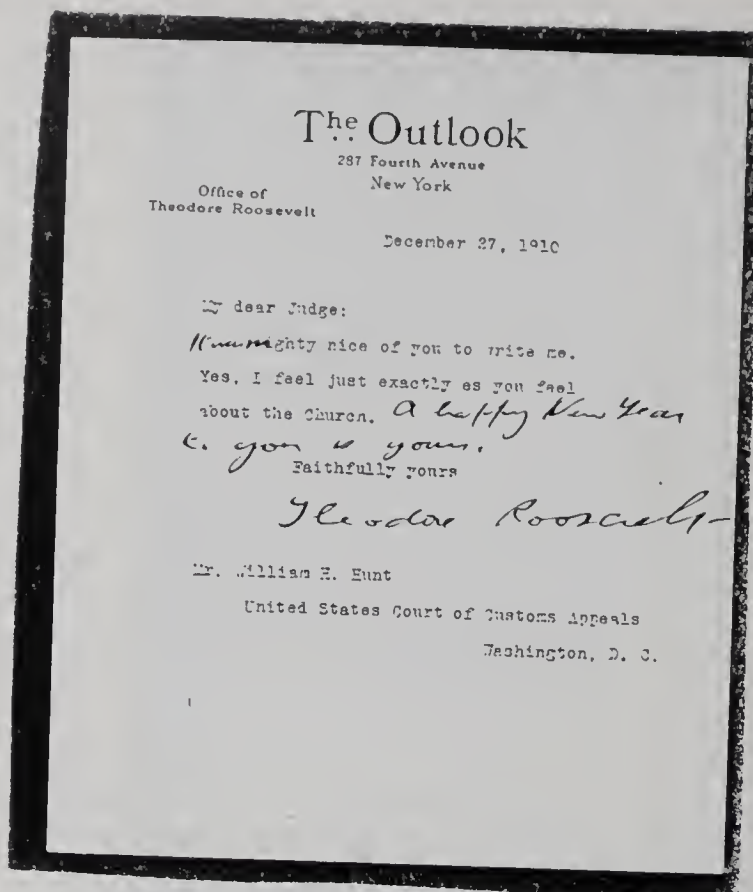 The Outlook
287 Fourth Avenue
New York
Office of
Theodore Roosevelt
December 27, 1910
My dear Judge:
It was mighty nice of you to write me.
Yes, I feel just exactly as you feel
about the Church. A happy New Year
to you & yours.
Faithfully yours
Theodore Roosevelt
Mr. William H. Hunt
United States Court of Customs Appeals
Washington, D. C.